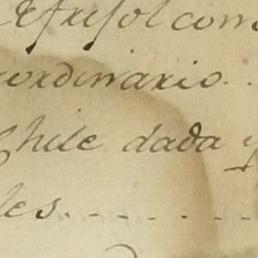 el frisol com
aordinario..
Chile dada y
les.......